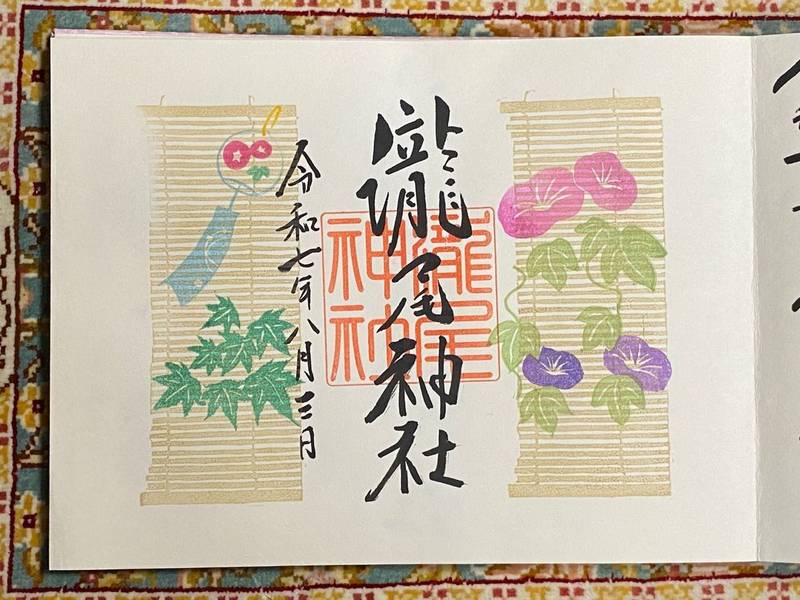 瀧尾神社
瀧尾
神社
令和七年八月三日